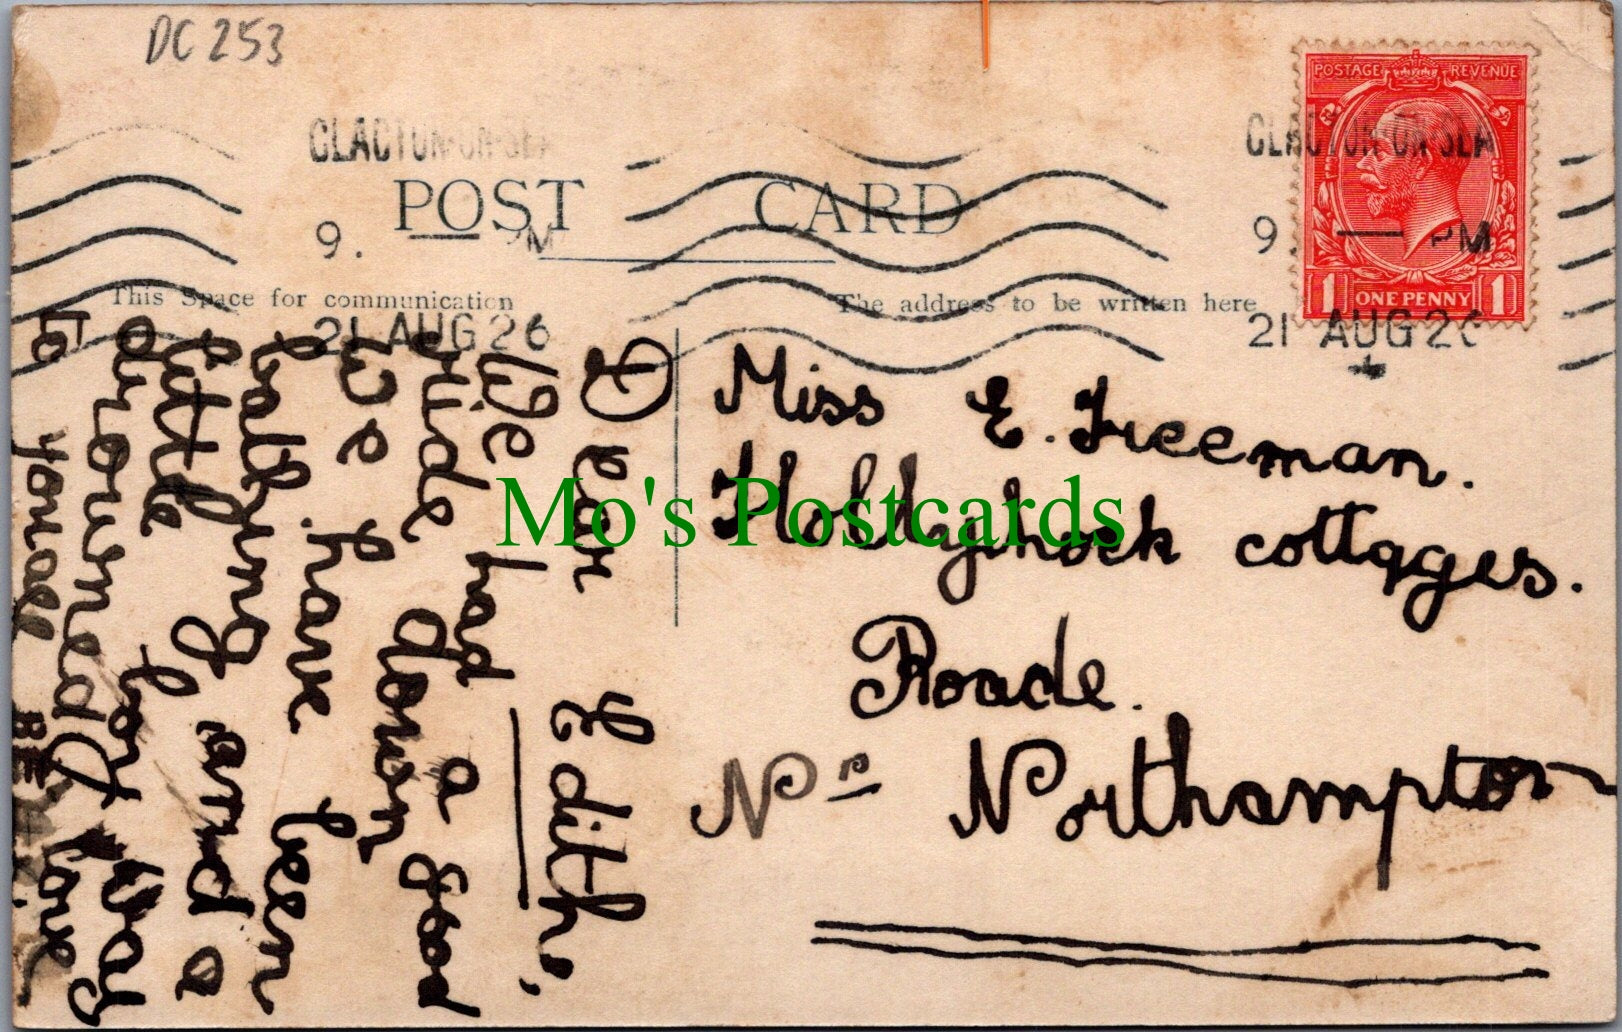 DC 253
CLACTON-ON-SEA
9. PM
21 AUG 26
POST CARD
This Space for communication
The address to be written here
CLACTON-ON-SEA
9. PM
21 AUG 26
POSTAGE REVENUE
1 ONE PENNY 1
Dear Edith,
We had a good
ride down
We have been
bathing and a
little
arouned
to you all
love
Miss E. Freeman.
Hollyhock cottages.
Roade.
Nr Northampton
Mo's Postcards